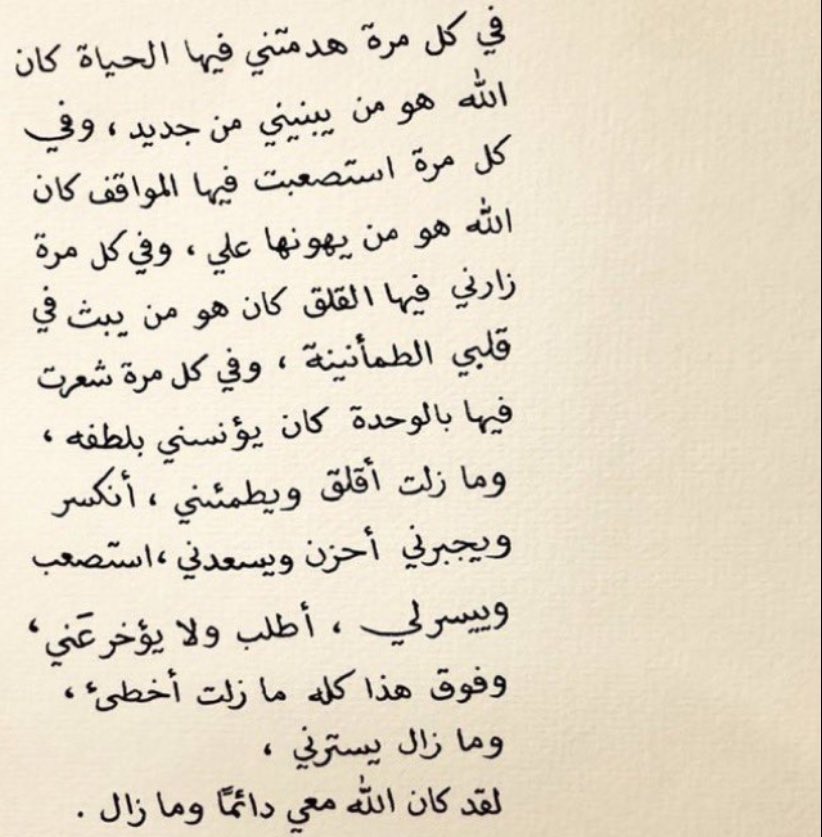 في كل مرة هدمتني فيها الحياة كان
الله هو من يبنيني من جديد ، وفي
كل مرة استصعبت فيها المواقف كان
الله هو من يهونها علي ، وفي كل مرة
زارني فيها القلق كان هو من يبث في
قلبي الطمأنينة ، وفي كل مرة شعرت
فيها بالوحدة كان يؤنسني بلطفه ،
وما زلت أقلق ويطمئنني ، أنكسر
ويجبرني أحزن ويسعدني ،استصعب
وييسر لي ، أطلب ولا يؤخر عَني ،
وفوق هذا كله ما زلت أخطىء ،
وما زال يسترني ،
لقد كان الله معي دائمًا وما زال .